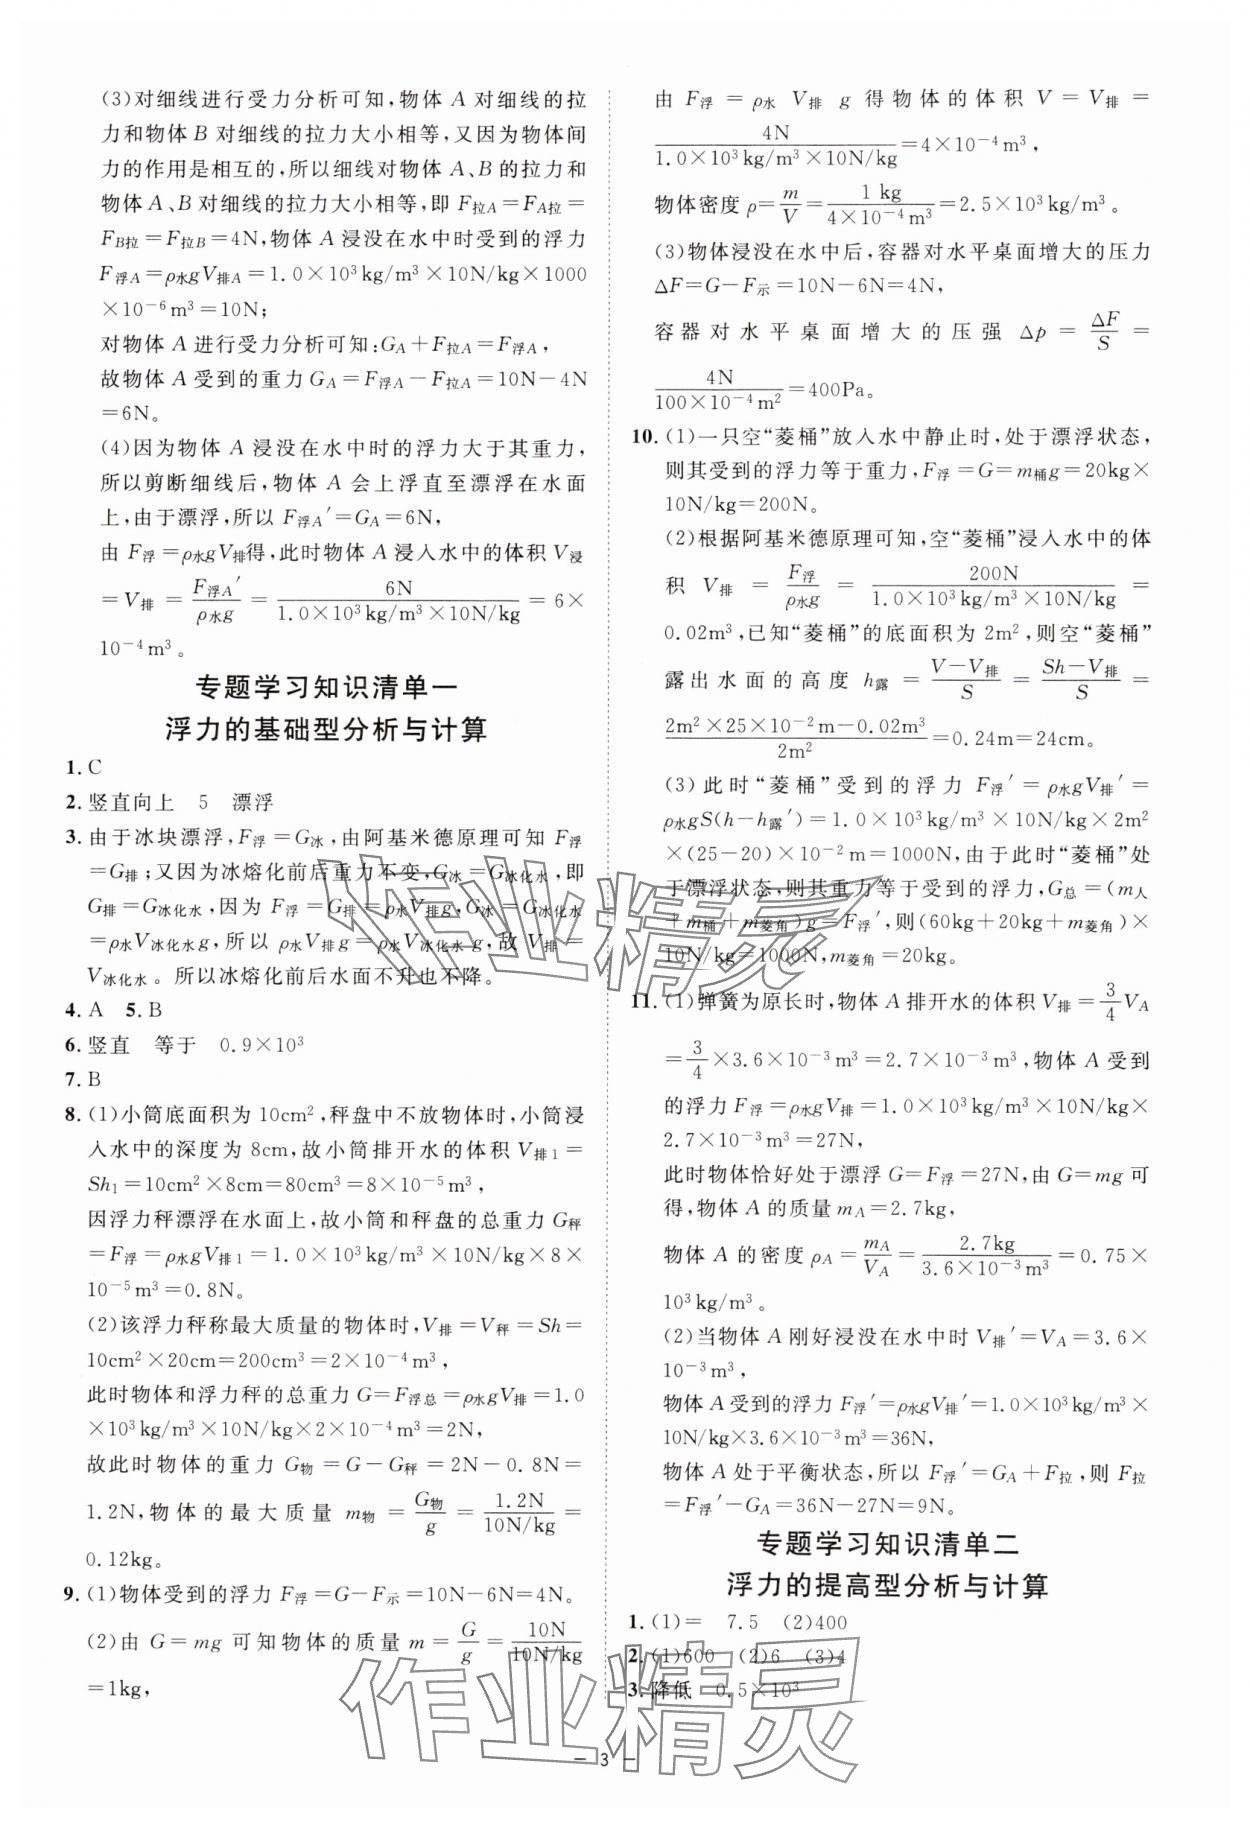 (3)对细线进行受力分析可知,物体 A 对细线的拉
力和物体 B 对细线的拉力大小相等,又因为物体间
力的作用是相互的,所以细线对物体 A、B 的拉力和
物体 A、B 对细线的拉力大小相等,即 F拉A＝FA拉＝
FB拉＝F拉B＝4N,物体 A 浸没在水中时受到的浮力
F浮A＝ρ水gV排A＝1.0×10³kg/m³×10N/kg×1000
×10⁻⁶m³＝10N;
对物体 A 进行受力分析可知:GA＋F拉A＝F浮A,
故物体 A 受到的重力 GA＝F浮A－F拉A＝10N－4N
＝6N。
(4)因为物体 A 浸没在水中时的浮力大于其重力,
所以剪断细线后,物体 A 会上浮直至漂浮在水面
上,由于漂浮,所以 F浮A′＝GA＝6N,
由 F浮＝ρ水gV排得,此时物体 A 浸入水中的体积 V浸
＝V排＝F浮A′/ρ水g＝6N/1.0×10³kg/m³×10N/kg＝6×
10⁻⁴m³。
专题学习知识清单一
浮力的基础型分析与计算
1. C
2. 竖直向上 5 漂浮
3. 由于冰块漂浮,F浮＝G冰,由阿基米德原理可知 F浮
＝G排;又因为冰熔化前后重力不变,G冰＝G冰化水,即
G排＝G冰化水,因为 F浮＝G排＝ρ水V排g,G冰＝G冰化水
＝ρ水V冰化水g,所以 ρ水V排g＝ρ水V冰化水g,故 V排＝
V冰化水。所以冰熔化前后水面不升也不降。
4. A 5. B
6. 竖直 等于 0.9×10³
7. B
8. (1)小筒底面积为 10cm²,秤盘中不放物体时,小筒浸
入水中的深度为 8cm,故小筒排开水的体积 V排1＝
Sh₁＝10cm²×8cm＝80cm³＝8×10⁻⁵m³,
因浮力秤漂浮在水面上,故小筒和秤盘的总重力 G秤
＝F浮＝ρ水gV排1＝1.0×10³kg/m³×10N/kg×8×
10⁻⁵m³＝0.8N。
(2)该浮力秤称最大质量的物体时,V排＝V秤＝Sh＝
10cm²×20cm＝200cm³＝2×10⁻⁴m³,
此时物体和浮力秤的总重力 G＝F浮总＝ρ水gV排＝1.0
×10³kg/m³×10N/kg×2×10⁻⁴m³＝2N,
故此时物体的重力 G物＝G－G秤＝2N－0.8N＝
1.2N,物体的最大质量 m物＝G物/g＝1.2N/10N/kg＝
0.12kg。
9. (1)物体受到的浮力 F浮＝G－F示＝10N－6N＝4N。
(2)由 G＝mg 可知物体的质量 m＝G/g＝10N/10N/kg
＝1kg,
由 F浮＝ρ水 V排 g 得物体的体积 V＝V排＝
4N/1.0×10³kg/m³×10N/kg＝4×10⁻⁴m³,
物体密度 ρ＝m/V＝1 kg/4×10⁻⁴m³＝2.5×10³kg/m³。
(3)物体浸没在水中后,容器对水平桌面增大的压力
ΔF＝G－F示＝10N－6N＝4N,
容器对水平桌面增大的压强 Δp＝ΔF/S＝
4N/100×10⁻⁴m²＝400Pa。
10. (1)一只空“菱桶”放入水中静止时,处于漂浮状态,
则其受到的浮力等于重力,F浮＝G＝m桶g＝20kg×
10N/kg＝200N。
(2)根据阿基米德原理可知,空“菱桶”浸入水中的体
积 V排＝F浮/ρ水g＝200N/1.0×10³kg/m³×10N/kg＝
0.02m³,已知“菱桶”的底面积为 2m²,则空“菱桶”
露出水面的高度 h露＝V－V排/S＝Sh－V排/S＝
2m²×25×10⁻²m－0.02m³/2m²＝0.24m＝24cm。
(3)此时“菱桶”受到的浮力 F浮′＝ρ水gV排′＝
ρ水gS(h－h露′)＝1.0×10³kg/m³×10N/kg×2m²
×(25－20)×10⁻²m＝1000N,由于此时“菱桶”处
于漂浮状态,则其重力等于受到的浮力,G总＝(m人
＋m桶＋m菱角)g＝F浮′,则(60kg＋20kg＋m菱角)×
10N/kg＝1000N,m菱角＝20kg。
11. (1)弹簧为原长时,物体 A 排开水的体积 V排＝3/4VA
＝3/4×3.6×10⁻³m³＝2.7×10⁻³m³,物体 A 受到
的浮力 F浮＝ρ水gV排＝1.0×10³kg/m³×10N/kg×
2.7×10⁻³m³＝27N,
此时物体恰好处于漂浮 G＝F浮＝27N,由 G＝mg 可
得,物体 A 的质量 mA＝2.7kg,
物体 A 的密度 ρA＝mA/VA＝2.7kg/3.6×10⁻³m³＝0.75×
10³kg/m³。
(2)当物体 A 刚好浸没在水中时 V排′＝VA＝3.6×
10⁻³m³,
物体 A 受到的浮力 F浮′＝ρ水gV排′＝1.0×10³kg/m³×
10N/kg×3.6×10⁻³m³＝36N,
物体 A 处于平衡状态,所以 F浮′＝GA＋F拉,则 F拉
＝F浮′－GA＝36N－27N＝9N。
专题学习知识清单二
浮力的提高型分析与计算
1. (1)＝ 7.5 (2)400
2. (1)600 (2)6 (3)4
3. 降低 0.5×10³
作业精灵
作业精灵
— 3 —